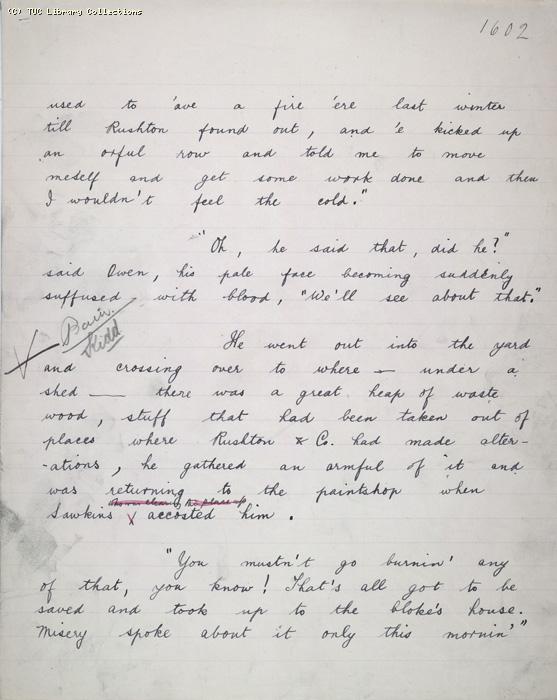 (C) TUC Library Collections
1602
used to 'ave a fire 'ere last winter
till Rushton found out, and 'e kicked up
an orful row and told me to move
meself and get some work done and then
I wouldn't feel the cold."
"Oh, he said that, did he?"
said Owen, his pale face becoming suddenly
suffused with blood, "We'll see about that."
Bain.
Kidd
He went out into the yard
and crossing over to where — under a
shed — there was a great heap of waste
wood, stuff that had been taken out of
places where Rushton & Co. had made alter-
-ations, he gathered an armful of it and
was returning to the paintshop when
Sawkins accosted him.
"You mustn't go burnin' any
of that, you know! That's all got to be
saved and took up to the bloke's house.
Misery spoke about it only this mornin'"